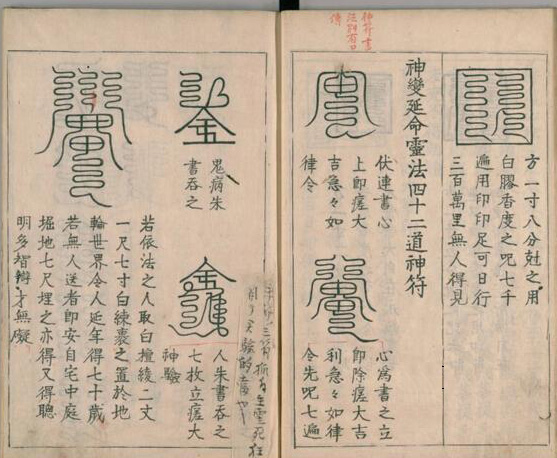 方一寸八分尅之用
白膠香度之呪七千
遍用印印足可日行
三百萬里無人得見
神變延命靈法四十二道神符
伏連書心
上即瘥大
吉急々如
律令
心為書之立
即除瘥大吉
利急々如律
令先呪七遍
鬼病朱
書吞之
人朱書吞之
七枚立瘥大
神驗
若依法之人取白檀綾二丈
一尺七寸白練裹之置於地
輪世界令人延年得七十歲
若無人送者即安自宅中庭
堀地七尺埋之亦得又得聰
明多智辯才無礙